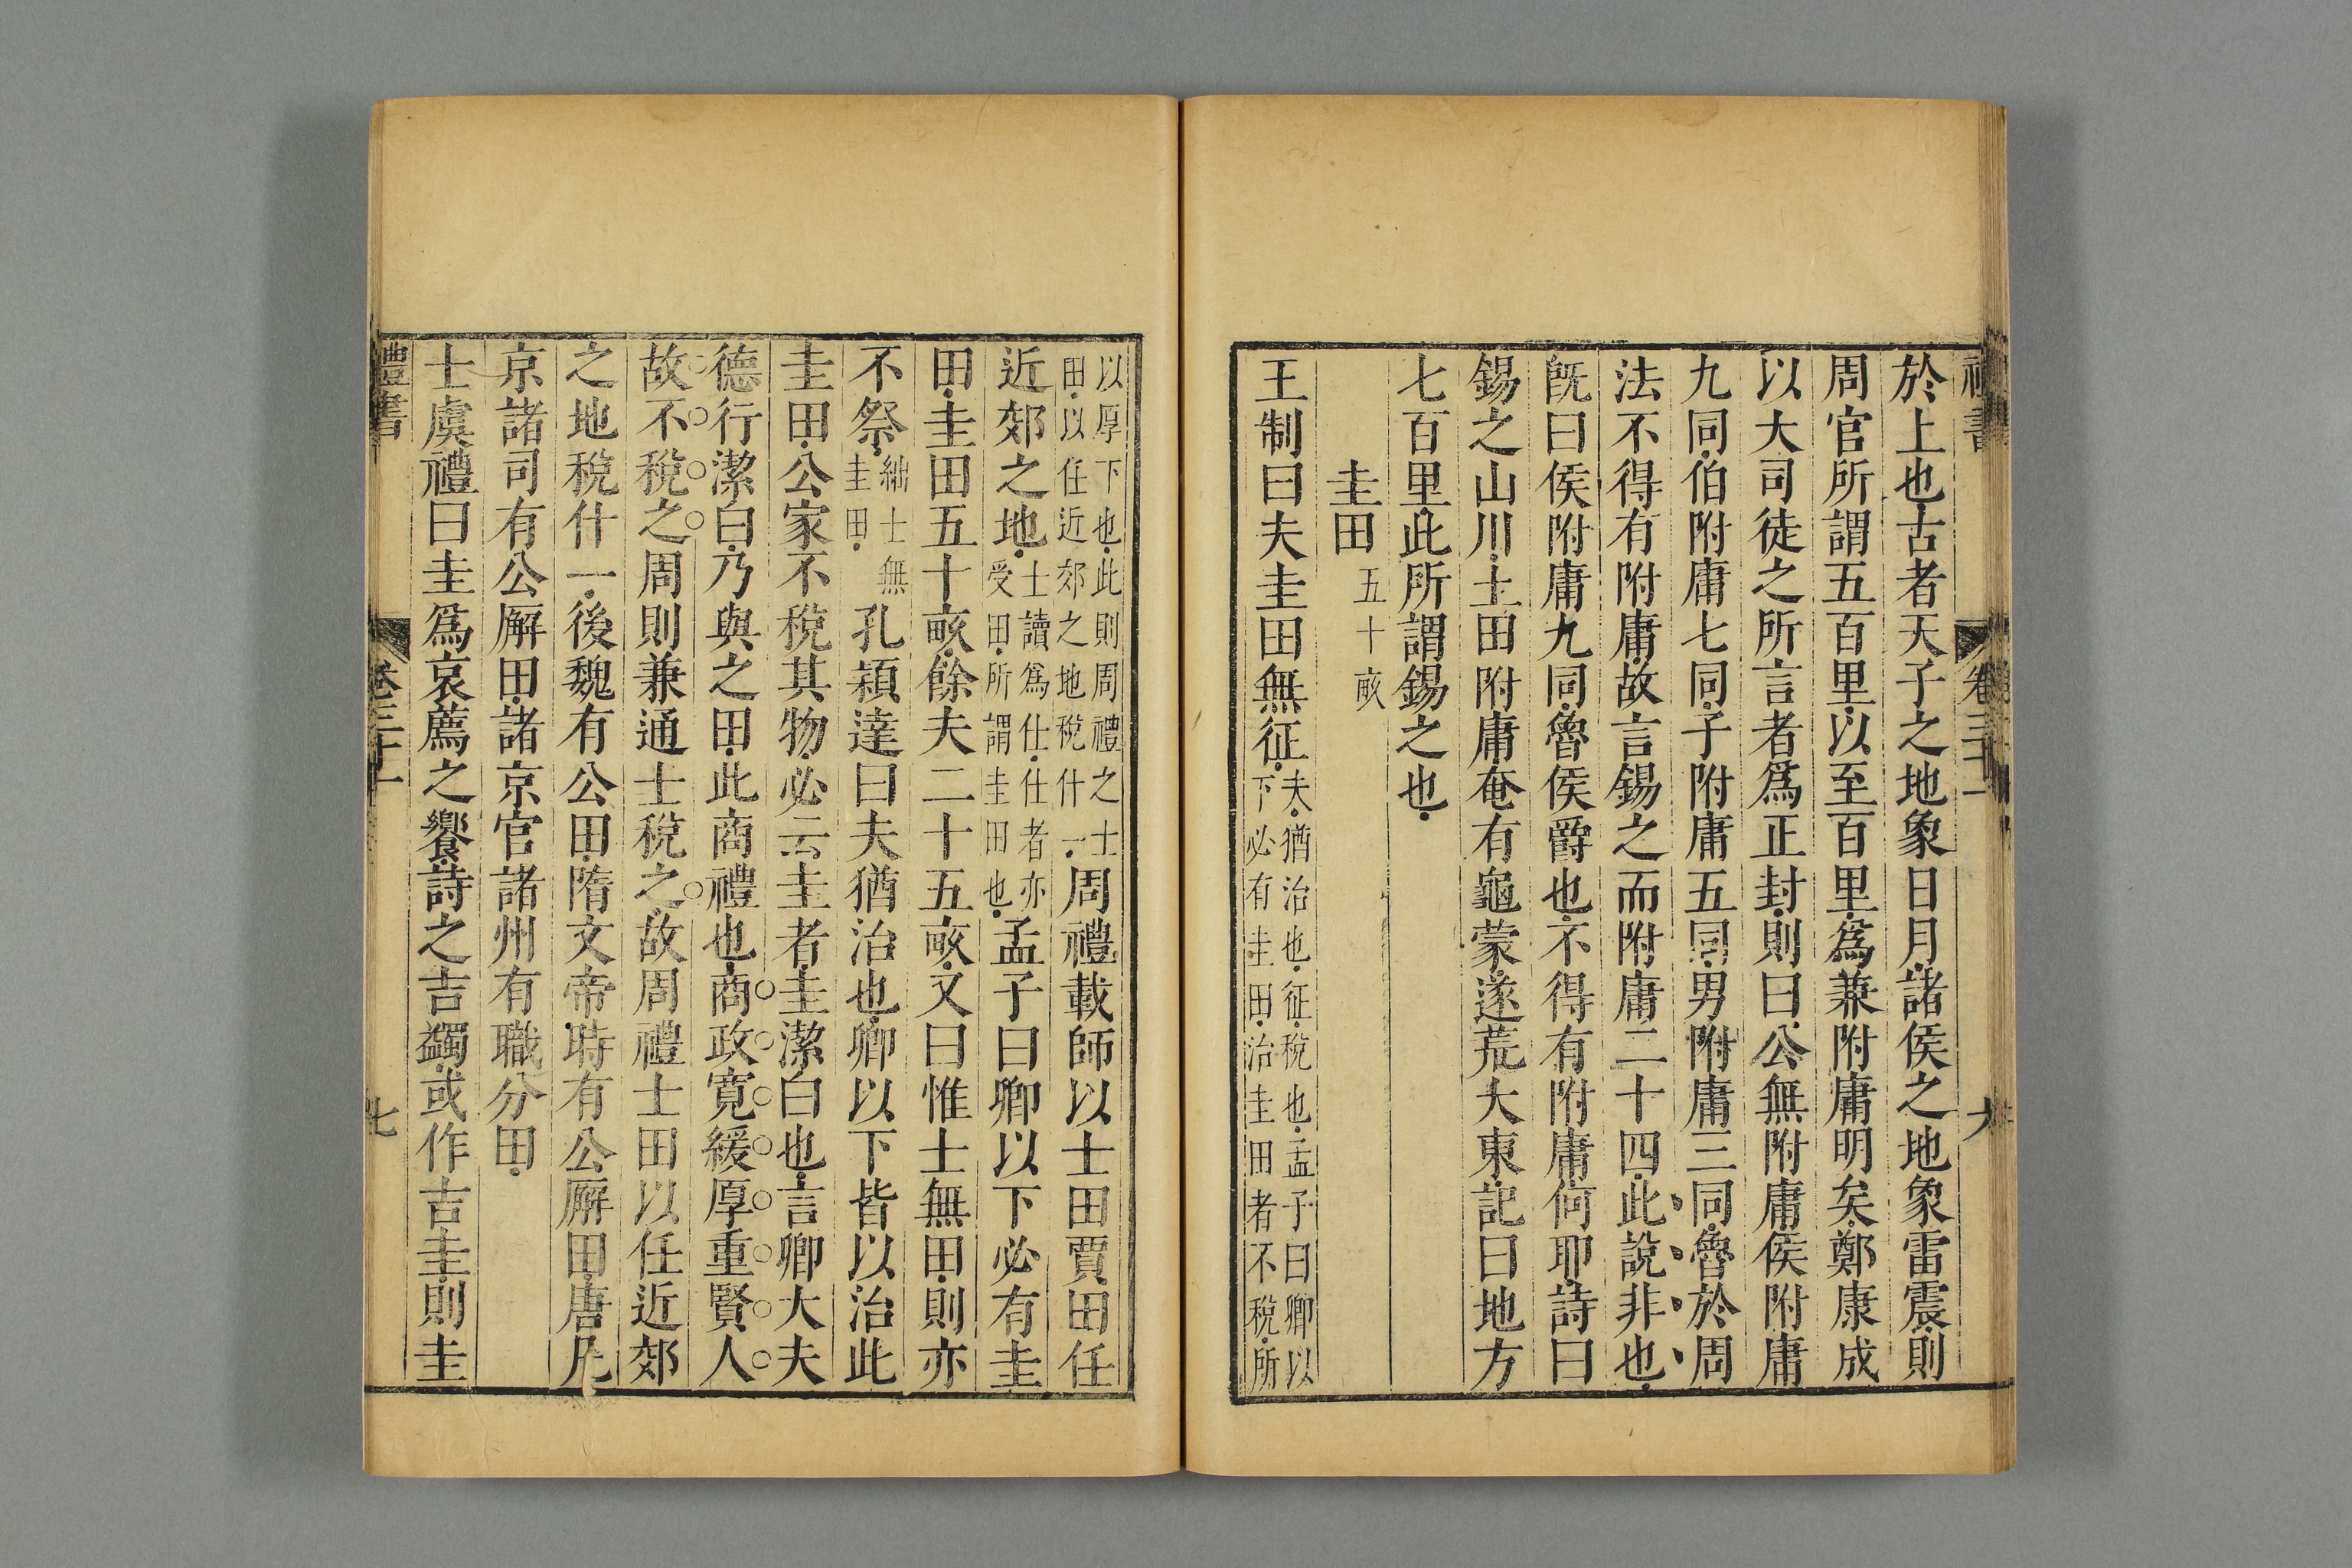 禮書
卷三十一
六
於上也古者天子之地象日月諸侯之地象雷震則
周官所謂五百里以至百里爲兼附庸明矣鄭康成
以大司徒之所言者爲正封則曰公無附庸侯附庸
九同伯附庸七同子附庸五同男附庸三同魯於周
法不得有附庸故言錫之而附庸二十四此說非也
旣曰侯附庸九同魯侯爵也不得有附庸何耶詩曰
錫之山川土田附庸奄有龜蒙遂荒大東記曰地方
七百里此所謂錫之也
圭田五十畝
王制曰夫圭田無征夫猶治也征稅也孟子曰卿以
下必有圭田治圭田者不稅所
以厚下也此則周禮之士
田以任近郊之地稅什一周禮載師以士田賈田任
近郊之地士讀爲仕仕者亦
受田所謂圭田也孟子曰卿以下必有圭
田圭田五十畝餘夫二十五畝又曰惟士無田則亦
不祭絀士無
圭田孔穎達曰夫猶治也卿以下皆以治此
圭田公家不稅其物必云圭者圭潔白也言卿大夫
德行潔白乃與之田此商禮也商政寬緩厚重賢人
故不稅之周則兼通士稅之故周禮士田以任近郊
之地稅什一後魏有公田隋文帝時有公廨田唐凡
京諸司有公廨田諸京官諸州有職分田
士虞禮曰圭爲哀薦之饗詩之吉蠲或作吉圭則圭
禮書
卷三十一
七